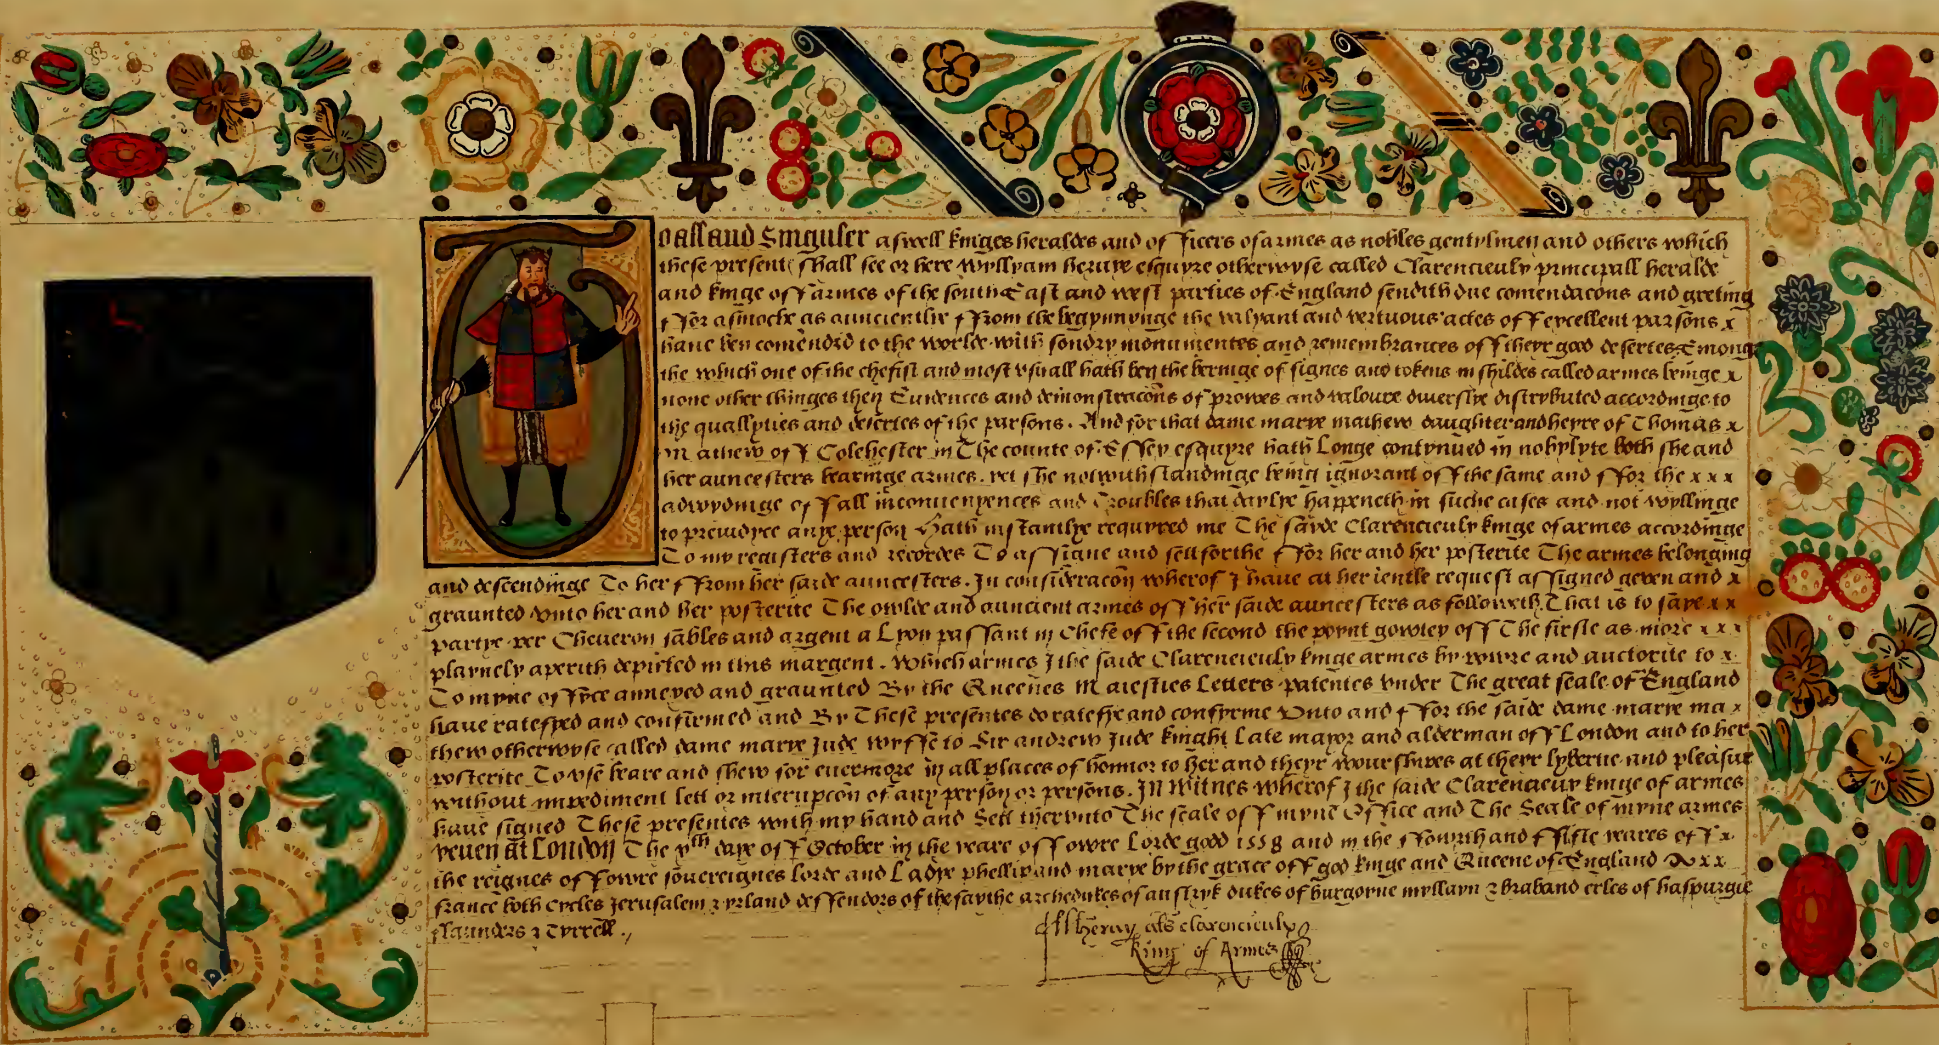 To all and Singuler aswell kinges heraldes and officers of armes as nobles gentylmen and others which
these present shall see or here Wyllyam heruye esquyre otherwyse called Clarencieulx principall heralde
and kinge off armes of the south East and west parties of England sendith due comendacons and greting
ffor asmoche as aunciently ffrom the begynnynge the valyant and vertuous actes off excellent parsons x
haue ben comended to the worlde with sondry monumentes and remembrances off theyr good desertes Emong
the which one of the chefist and most vsuall hath ben the beringe of signes and tokens in shildes called armes beinge x
none other thinges then Euidences and demonstracons of prowes and valoure diuerslye distrybuted accordinge to
the quallyties and desertes of the parsons. And for that dame marye mathew daughter and heyre of Thomas x
Mathew off Colchester in The counte of Essex esquyre hath Longe contynued in nobylyte both she and
her auncesters bearinge armes. yet she notwithstandinge being ignorant off the same and ffor the x x x
adwydinge off all inconuenyences and Troubles that daylye happeneth in suche cases and not wyllinge
to preiudyce anye person Hath instantlye requyred me The saide Clarencieulx kinge of armes accordinge
To my registers and recordes To assigne and sett forthe ffor her and her posterite The armes belonging
and descendinge To her ffrom her saide auncesters. In consideracon wherof I haue at her ientle request assigned geuen and x
graunted Vnto her and her posterite The owlde and auncient armes off her saide auncesters as followeth. That is to saye x x
partye per Cheueron sables and argent a Lyon passant in Chefe off the second the poynt gowtey off The firste as more x x x
playnely aperith depicted in this margent. Which armes I the saide Clarencieulx kinge armes by powre and auctorite to x
To myne offyce annexed and graunted By the Queenes Maiesties Letters patentes vnder The great seale of England
haue ratefyed and confirmed and By These presentes do ratefye and confyrme Vnto and ffor the saide dame marye ma x
thew otherwyse called dame marye Jude wyffe to Sir andrew Jude knight Late mayor and alderman off London and to her
posterite To vse beare and shew for euermore in all places of honnor to her and theyr wourshipes at theyr lybertie and pleasur
without impediment lett or interupcon of any person or persons. In Witnes wherof I the saide Clarencieux kinge of armes
haue signed These presentes with my hand and Sett therunto The seale off myne Office and The Seale of myne armes
yeuen at London The vth daye off October in the yeare off owre Lorde god 1558 and in the ffowrth and ffifte yeares off x
the reignes off owre souereignes lorde and Ladye phellip and marye by the grace off god kinge and Queene of England x x
france both cycles Jerusalem & yrland deffendors of the faythe archedukes of austryk dukes of burgoyne myllayn & braband erles of haspurgie
flaunders & Tyrrell.
Wllheruy als clarencieulx
King of Armes